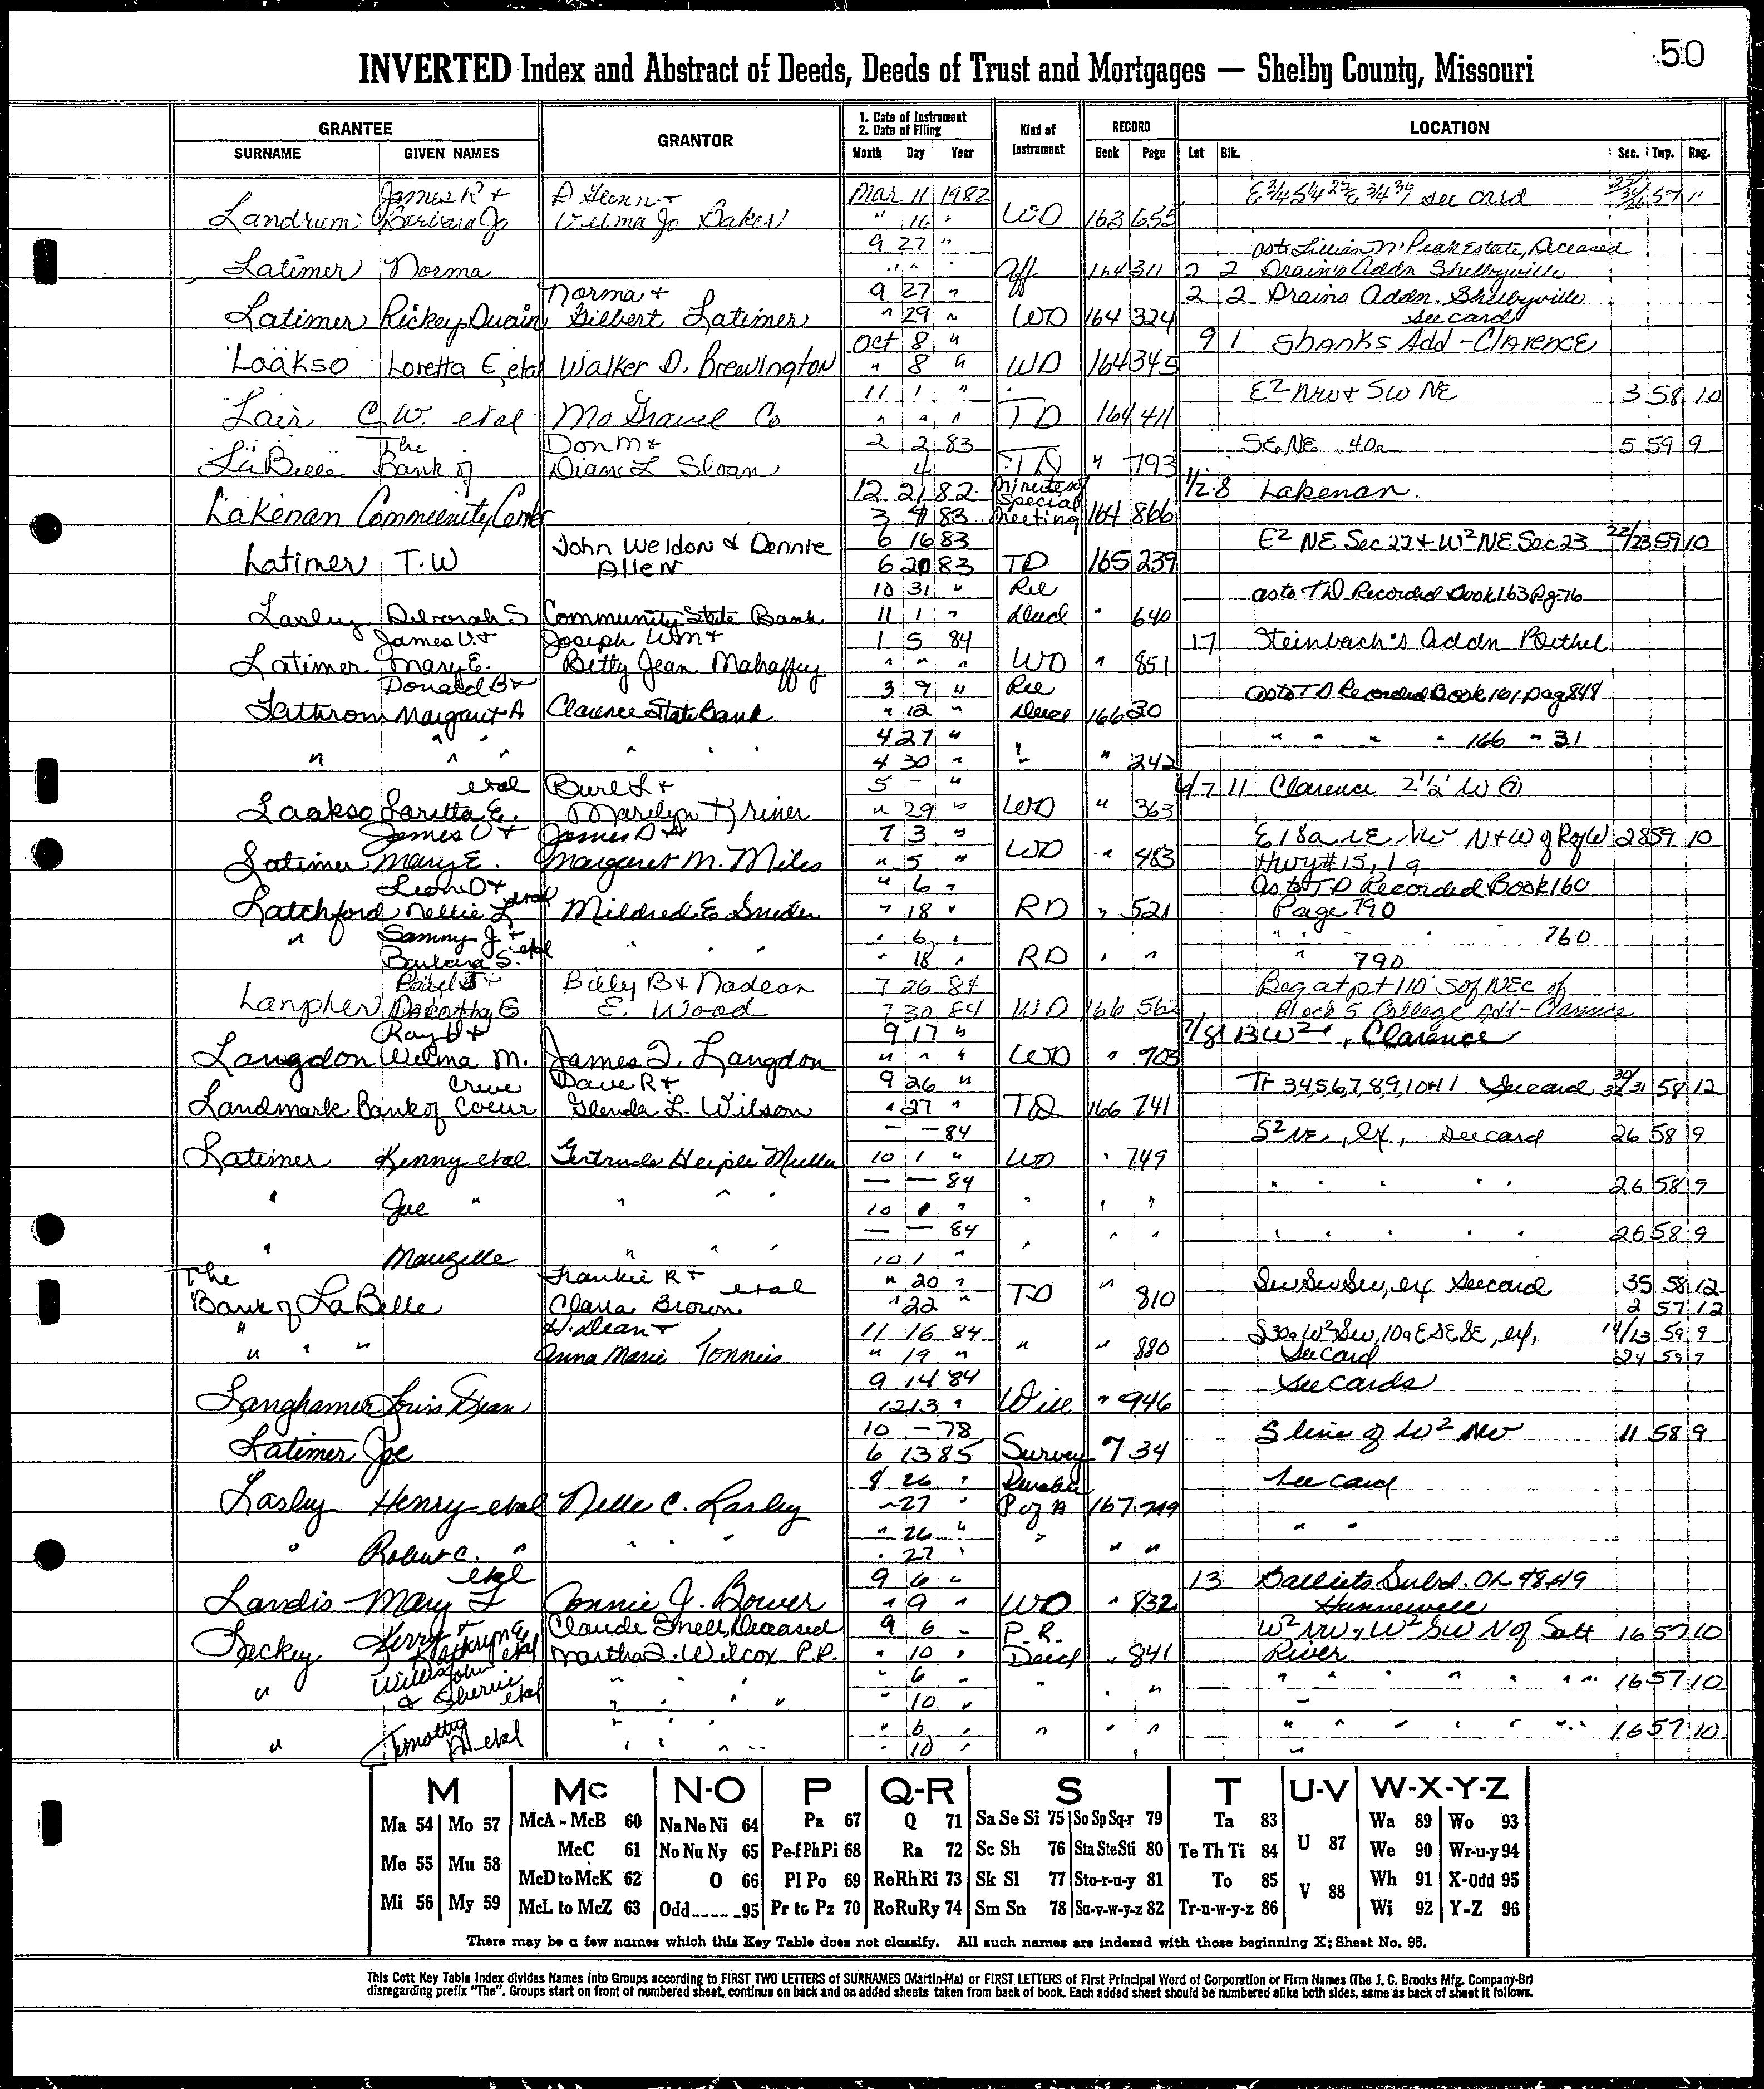 50
INVERTED Index and Abstract of Deeds, Deeds of Trust and Mortgages — Shelby County, Missouri
GRANTEE GRANTOR 1. Date of Instrument 2. Date of Filing Kind of Instrument RECORD LOCATION
SURNAME GIVEN NAMES Month Day Year Book Page Lot Blk. Sec. Twp. Rng.
James R + Mar 11 1982 see card 57 11
Landrum Barbara Jo Wilma Jo Baker " 11 " WD 163 655
9 27 " as to Lillian N Peak Estate, Deceased
Latimer Norma " " " Aff 164 311 2 2 Drain's Addn Shelbyville
Norma + 9 27 " 2 2 Drains Addn. Shelbyville
Latimer Rickey Duain Gilbert Latimer " 29 " WD 164 324 see card
Oct 8 " 9 1 Shanks Add - CLARENCE
Laakso Loretta E, etal Walker D. Brewington " 8 " WD 164 345
11 1 " E2 NW + SW NE 3 58 10
Lair C.W. etal Mo Gravel Co " " " TD 164 411
The Don M + 2 2 83 SE, NE 40a 5 59 9
LaBelle Bank of Diane L Sloan 4 TD " 793
12 21 82 Minutes of Special 1/2 8 Lakenan.
Lakenan Community Center 3 4 83 Meeting 164 866
John Weldon & Dennie 6 16 83 E2 NE Sec 22 + W2 NE Sec 23 22/23 59 10
Latimer T.W Allen 6 20 83 TD 165 239
10 31 " Rel as to TD Recorded Book 163 Pg 76
Lasley Deborah S Community State Bank 11 1 " Deed " 640
James V. + Joseph Wm + 1 5 84 17 Steinbach's Addn Bethel
Latimer Mary E. Betty Jean Mahaffey " " " WD " 851
Donald B + 3 9 " Rel as to TD Recorded Book 161, page 848
Lathrom Margaret A Clarence State Bank " 12 " Deed 166 30
4 27 " " " " " 166 " 31
" " " " " " 4 30 " " " 242
etal Burl L + 5 - " 6/7 11 Clarence 2 1/2' W
Laakso Loretta E. Marilyn Kriner " 29 " WD " 363
James V + James D + 7 3 " E 18a NE NW N + W of RofW 28 59 10
Latimer Mary E. Margaret M. Miles " 5 " WD " 483 Hwy # 15, 1a
Leon D + " 6 " as to TD Recorded Book 160
Latchford Nellie L etal Mildred E Snider " 18 " RD " 521 Page 790
" Sammy J + " " " " 6 " " 160
Barbara S. etal " 18 " RD " " " 790
Billy B + Nadean 7 26 84 Beg at pt 110' S of NEc of
Lanpher Dorothy E E. Wood 7 30 84 WD 166 562 Block 5 College Add - Clarence
Ray + 9 17 " 7/8 13 W2, Clarence
Langdon Wilma M. James Q. Langdon " " " WD " 703
Creve Dave R + 9 26 " Tr 3,4,5,6,7,8,9,10+11 See card 58 12
Landmark Bank of Coeur Glenda L. Wilson " 27 " TD 166 741
— — 84 S2 NE, ex, See card 26 58 9
Latimer Kenny etal Gertrude Heiple Muller 10 1 " WD " 749
— — 84 " " " " " 26 58 9
" Joe " " " " 10 1 " " " "
— — 84 " " " " " 26 58 9
" Mauzelle " " " 10 1 " " " "
The Frankie R + etal " 20 " SW SW SW, ex See card 35 58 12
Bank of LaBelle Clara Brown " 22 " TD " 810 2 57 12
" H. Dean + 11 16 84 S30a W2 SW, 10a E SE SE, ex, 14/13 59 9
" " " Anna Marie Tonnies " 19 " " " 880 See card 24 59 9
9 14 84 See cards
Langhamer Loris Dean 12 13 " Will " 946
10 - 78 S line of W2 NW 11 58 9
Latimer Joe 6 13 85 Survey 7 34
8 26 " Durable See card
Lasley Henry etal Nelle C. Lasley " 27 " P of A 167 749
" 26 " " "
" Robert C. " " " " " 27 " " " "
etal 9 6 " 13 Balliets Subd. OL 48+49
Landis Mary F Connie J. Bower " 9 " WD " 832 Hunnewell
Kerry + Claude Snell, Deceased 9 6 " P.R. W2 NW + W2 SW N of Salt 16 57 10
Leckey Kathryn E etal Martha Q. Wilcox P.R. " 10 " Deed " 841 River
" Willis John " " " " 6 " " " " " " " " " 16 57 10
& Sherrie etal " " " " " 10 "
Timothy " " " " 6 " " " " " " " " " " 16 57 10
" D etal " " " " " " 10 "
M Mc N-O P Q-R S T U-V W-X-Y-Z
Ma 54 Mo 57 McA - McB 60 Na Ne Ni 64 Pa 67 Q 71 Sa Se Si 75 So Sp Sq-r 79 Ta 83 Wa 89 Wo 93
Me 55 Mu 58 McC 61 No Nu Ny 65 Pe-f Ph Pi 68 Ra 72 Sc Sh 76 Sta Ste Sti 80 Te Th Ti 84 U 87 We 90 Wr-u-y 94
McD to McK 62 O 66 Pl Po 69 Re Rh Ri 73 Sk Sl 77 Sto-r-u-y 81 To 85 V 88 Wh 91 X-Odd 95
Mi 56 My 59 McL to McZ 63 Odd_____95 Pr to Pz 70 Ro Ru Ry 74 Sm Sn 78 Su-v-w-y-z 82 Tr-u-w-y-z 86 Wi 92 Y-Z 96
There may be a few names which this Key Table does not classify. All such names are indexed with those beginning X; Sheet No. 95.
This Cott Key Table Index divides Names into Groups according to FIRST TWO LETTERS of SURNAMES (Martin-Ma) or FIRST LETTERS of First Principal Word of Corporation or Firm Names (The J. C. Brooks Mfg. Company-Br)
disregarding prefix "The". Groups start on front of numbered sheet, continue on back and on added sheets taken from back of book. Each added sheet should be numbered alike both sides, same as back of sheet it follows.